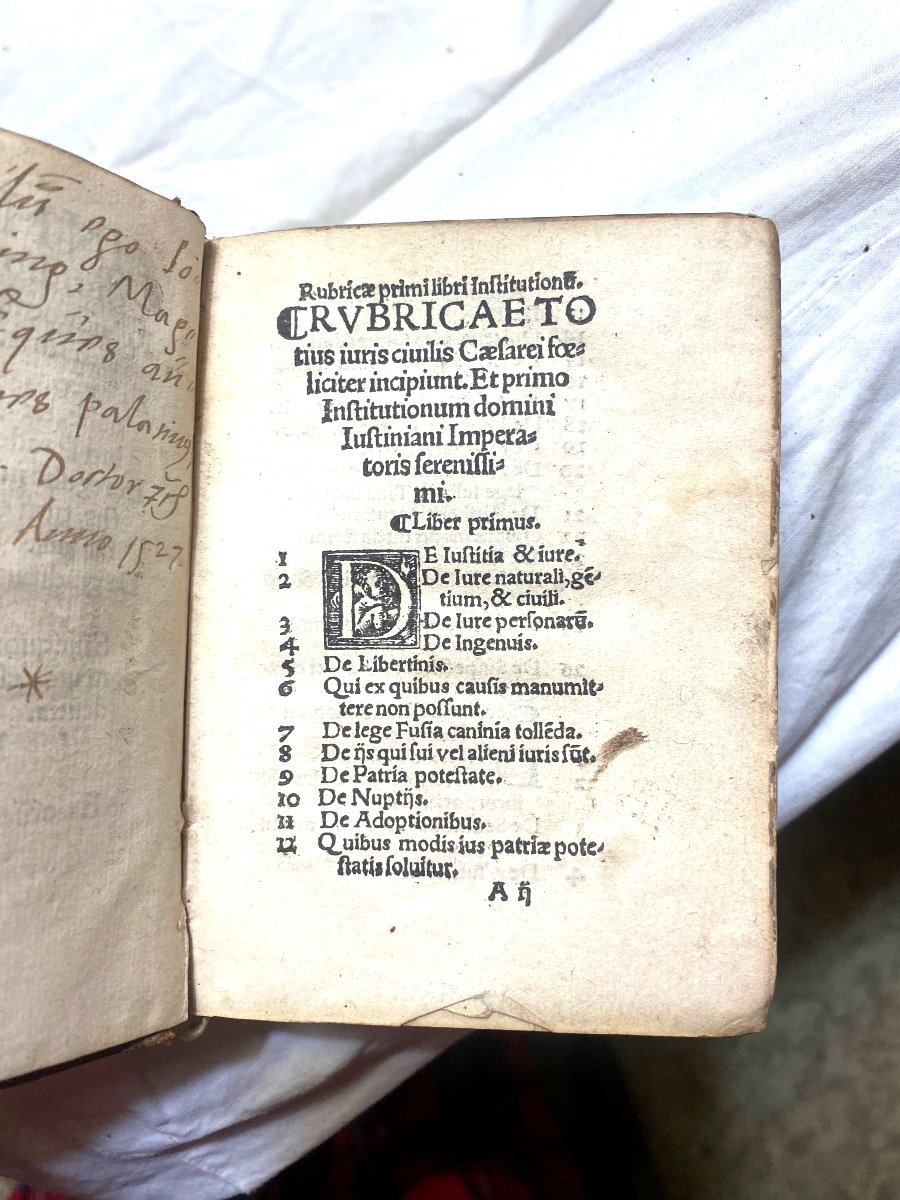 ego Jo
Mag
Equitus
palatinus
Doctor
Anno 1527.
Rubricæ primi libri Institutionū.
⁋RVBRICAE TO
tius iuris ciuilis Cæſarei fœ⸗
liciter incipiunt. Et primo
Inſtitutionum domini
Iuſtiniani Impera⸗
toris ſereniſſi⸗
mi.
⁋Liber primus.
1 DE Iuſtitia & iure.
2 De Iure naturali, gē⸗
tium, & ciuili.
3 De Iure perſonarū.
4 De Ingenuis.
5 De Libertinis.
6 Qui ex quibus cauſis manumit⸗
tere non poſſunt.
7 De lege Fuſia caninia tollēda.
8 De ijs qui ſui vel alieni iuris sūt.
9 De Patria poteſtate.
10 De Nuptijs.
11 De Adoptionibus.
12 Quibus modis ius patriæ pote⸗
ſtatis ſoluitur.
A ij